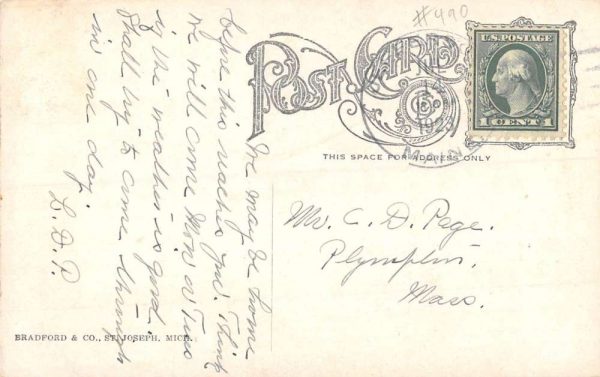 #490
POST CARD
U.S. POSTAGE
1 CENT 1
MAINE
THIS SPACE FOR ADDRESS ONLY
We may be home
before this reaches you. Think
we will come Mon or Tues
if the weather is good.
Shall try to come through
in one day.
L. D. P.
Mr. C. D. Page.
Plympton.
Mass.
BRADFORD & CO., ST. JOSEPH, MICH.